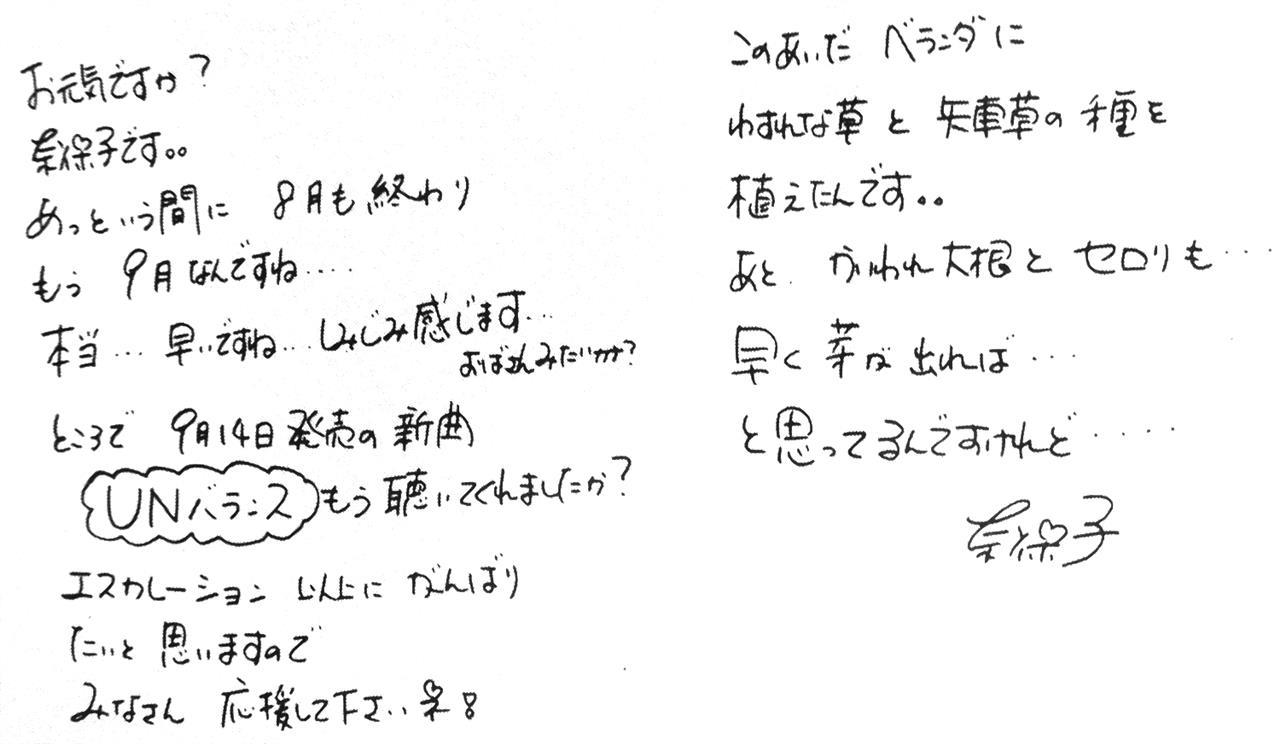 お元気ですか?
奈保子です。。
あっという間に 8月も終わり
もう 9月なんですね‥‥
本当… 早いですね… しみじみ感じます…
おばさんみたいかな?
ところで 9月14日発売の新曲
UNバランス もう聴いてくれましたか?
エスカレーション 以上に がんばり
たいと 思いますので
みなさん 応援して下さい
このあいだ ベランダに
わすれな草と 矢車草の 種を
植えたんです。。
あと、かいわれ大根と セロリも…
早く 芽が出れば…
と思ってるんですけれど‥‥‥
奈保子